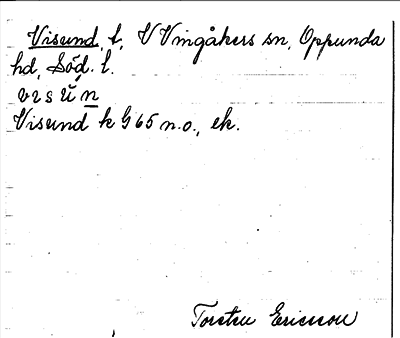 Visund, t, V Vingåkers sn, Oppunda
hd, Söd. l.
visún
Visund k G 65 n.o., ek.
Torsten Ericsson